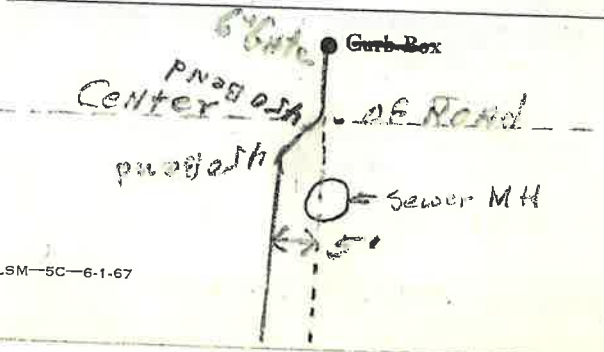 6" Gate
Curb Box
45° Bend
Center of Road
45° Bend
Sewer MH
5'
LSM—5C—6-1-67